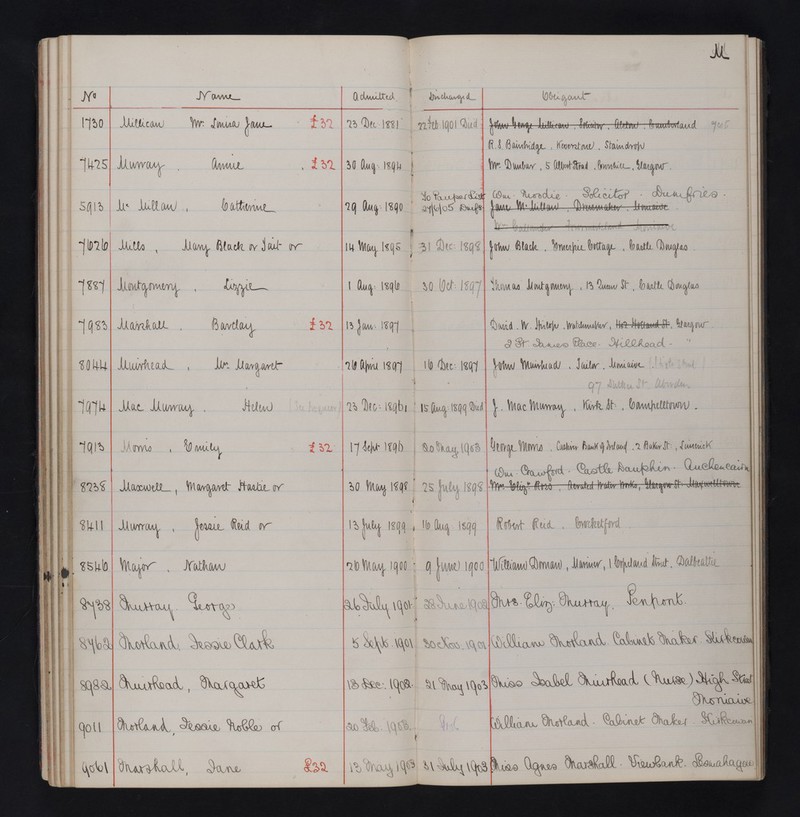 M
No Name Admitted Discharged Obligant
1730 Millican Mrs Louisa Jane £32 23 Dec 1881 22 Feb 1901 Died John George Millican, Solicitor, Cumberland
R. S. Bainbridge, Staindrop
7425 Murray, Annie, £32 30 Aug 1894 Mr Dunbar, 5 Albert Road, Crosshill, Glasgow
To Pauper List Wm Moodie Solicitor Dumfries
5913 Mc Millan, Catherine 29 Aug 1890 27/6/05 Jane McMillan, Dressmaker, Moniaive
7626 Mills, Mary Black or Tait or 14 May 1895 31 Dec 1898 John Black, Cottage, Castle Douglas
7887 Montgomery, Lizzie 1 Aug 1896 30 Oct 1897 Thomas Montgomery, 13 Queen St, Castle Douglas
7983 Marshall, Barclay £32 13 Jan 1897 David W. Glasgow
2 St James Place Hillhead "
8044 Muirhead, Mrs Margaret 26 April 1897 16 Dec 1897 John Muirhead, Tailor, Moniaive
97 St Aberdeen
7974 Mac Murray, Helen 23 Dec 1896 15 Aug 1899 Died J. MacMurray, Kirk St, Campbelltown
7913 Morris, Emily £32 17 Sept 1896 20 May 1903 George Morris, Cashier Bank of Ireland, 2 Baker St, Limerick
Wm Crawford Castle Dauphin Auchencairn
8238 Maxwell, Margaret Hastie or 30 May 1898 25 July 1898 Mrs Eliz Ross, Aerated Water Works, Glasgow St Maxwelltown
8411 Murray, Jessie Reid or 13 July 1899 16 Aug 1899 Robert Reid, Crocketford
8546 Major, Nathan 26 May 1900 9 June 1900 William Dornan, Mariner, 1 Copeland Street, Dalbeattie
8738 Murray George 26 July 1901 28 June 1902 Mrs Eliz. Murray, Penpont
8762 Morland, Jessie Clark 5 Sept 1901 30 Nov. 1901 William Morland Cabinet Maker Kirkcowan
8982 Muirhead, Margaret 18 Dec. 1902 21 May 1903 Miss Isabel Muirhead (Nurse) High Street
Moniaive
9011 Morland, Jessie Noble or 20 Feb. 1903 William Morland Cabinet Maker Kirkcowan
9061 Marshall, Jane £32 13 May 1903 31 July 1903 Miss Agnes Marshall Viewbank Lesmahagow